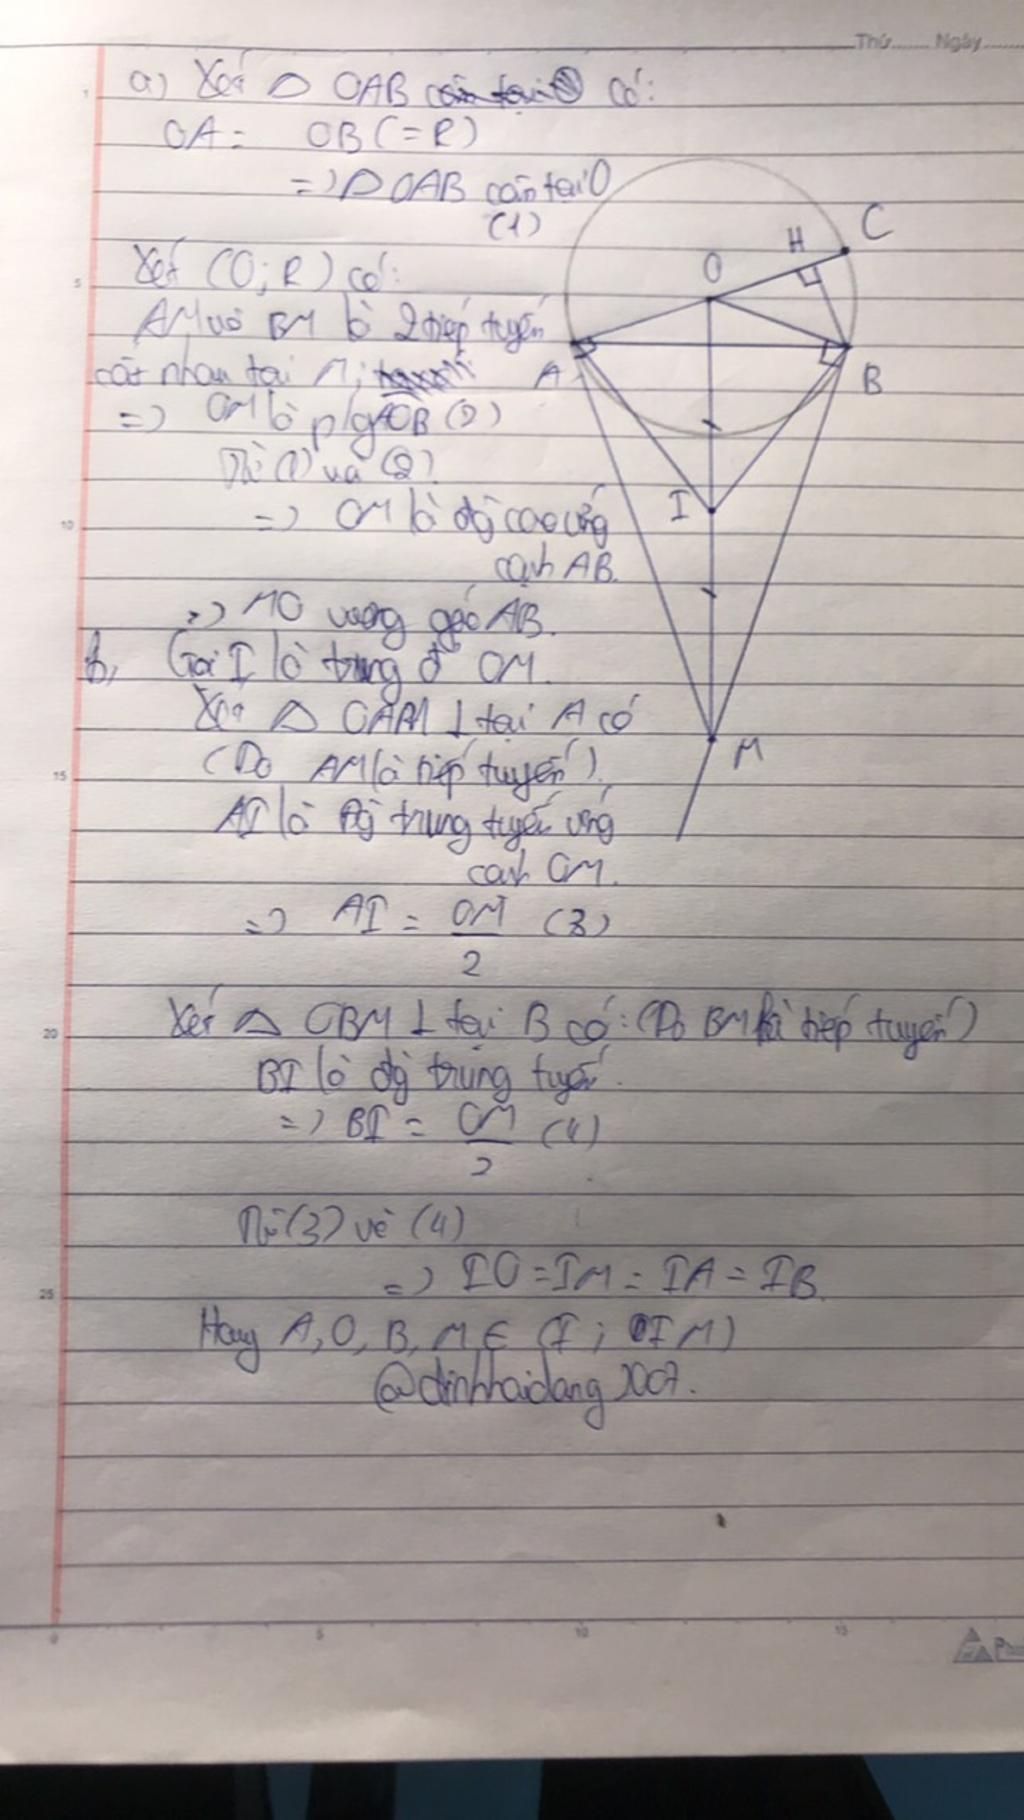 Thứ...... Ngày.......
a) Xét △ OAB có:
OA = OB (=R)
=> △OAB cân tại O
(1)
Xét (O;R) có:
AM và BM là 2 tiếp tuyến
cắt nhau tại M;
=> OM là p/g AOB (2)
Từ (1) và (2)
=> OM là đg cao ứng
cạnh AB.
=> MO vuông góc AB.
b, Gọi I là trung đ OM.
Xét △ OAM ⊥ tại A có
(Do AM là tiếp tuyến).
AI là đg trung tuyến ứng
cạnh OM.
=> AI = OM/2 (3)
Xét △ OBM ⊥ tại B có: (Do BM là tiếp tuyến)
BI là đg trung tuyến.
=> BI = OM/2 (4)
Từ (3) và (4)
=> IO = IM = IA = IB.
Hay A, O, B, M ∈ (I; IM)
@dinhhaidang2007.
C
H
O
A
B
I
M
1
5
10
15
20
25
0
5
10
15